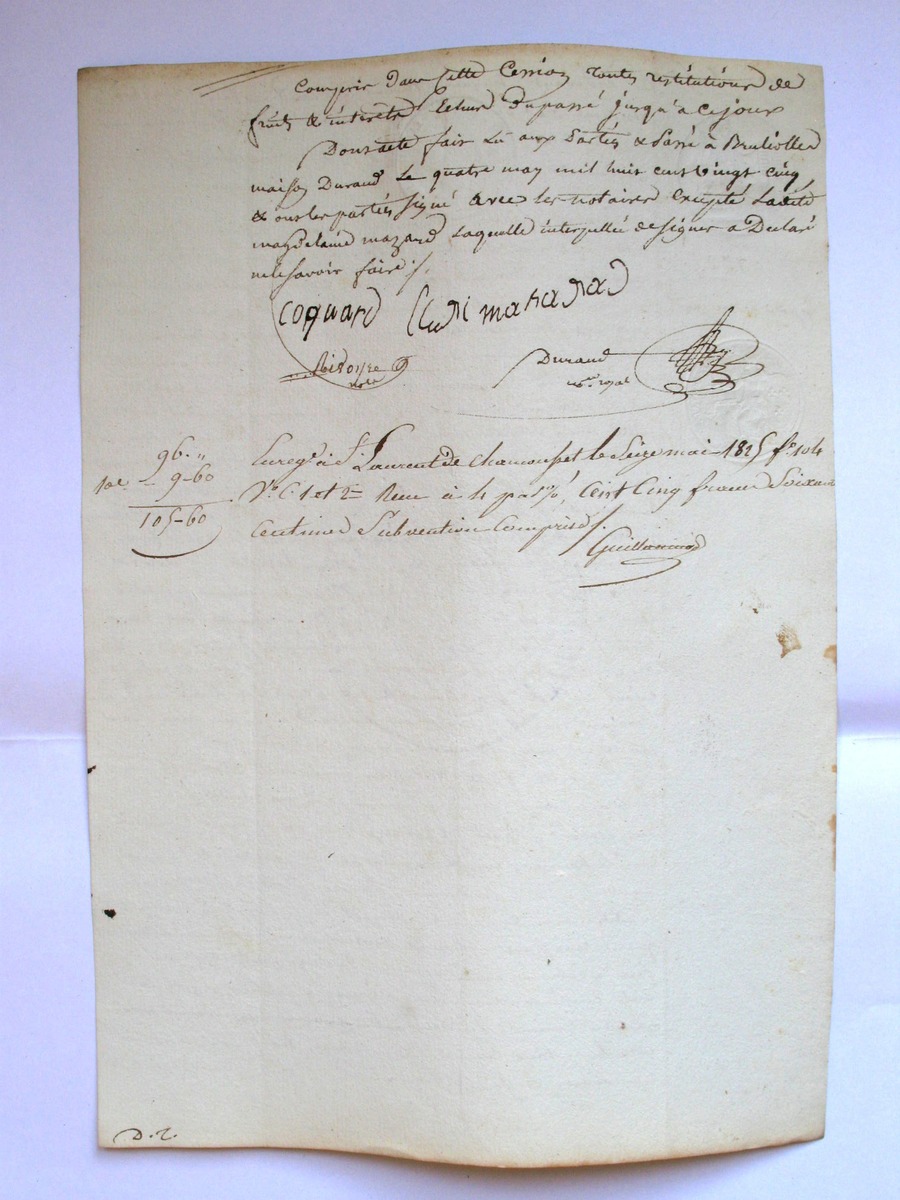 Comprix dans cette Cession toutes restitutions de
fruits & interets Echus du passé jusqu'à ce jour
Dont acte fait Lû aux Parties & Passé à Brulliolles
maison Durand Le quatre may mil huit cent vingt cinq
& ont les parties signé avec les notaires Excepté Ladite
magdelaine mazard Laquelle interpellée de signer a Declaré
ne le savoir faire /.
coquard
Durand
not.re royal
96. "
10e - 9-60
105-60
Enreg.é à S.t Laurent de chamousset le Seize mai 1825 f.o 104
V.o C. 1 et 2 Reçu à 4 p. %, Cent Cinq francs Soixante
Centimes Subvention Comprise /.
Guillominod
D. 2.